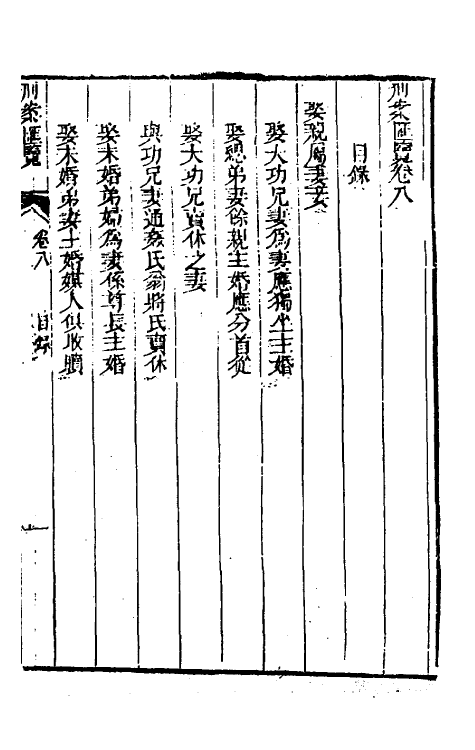 刑案匯覽卷八
目錄
娶親屬妻妾
娶大功兄妻爲妻應獨坐主婚
娶緦弟妻係親主婚應分首從
娶大功兄賣休之妻
與功兄妻通姦氏翁將氏賣休
娶未婚弟婦爲妻係尊長主婚
娶未婚弟妻主婚媒人俱收贖
刑案匯覽 卷八 目錄 一